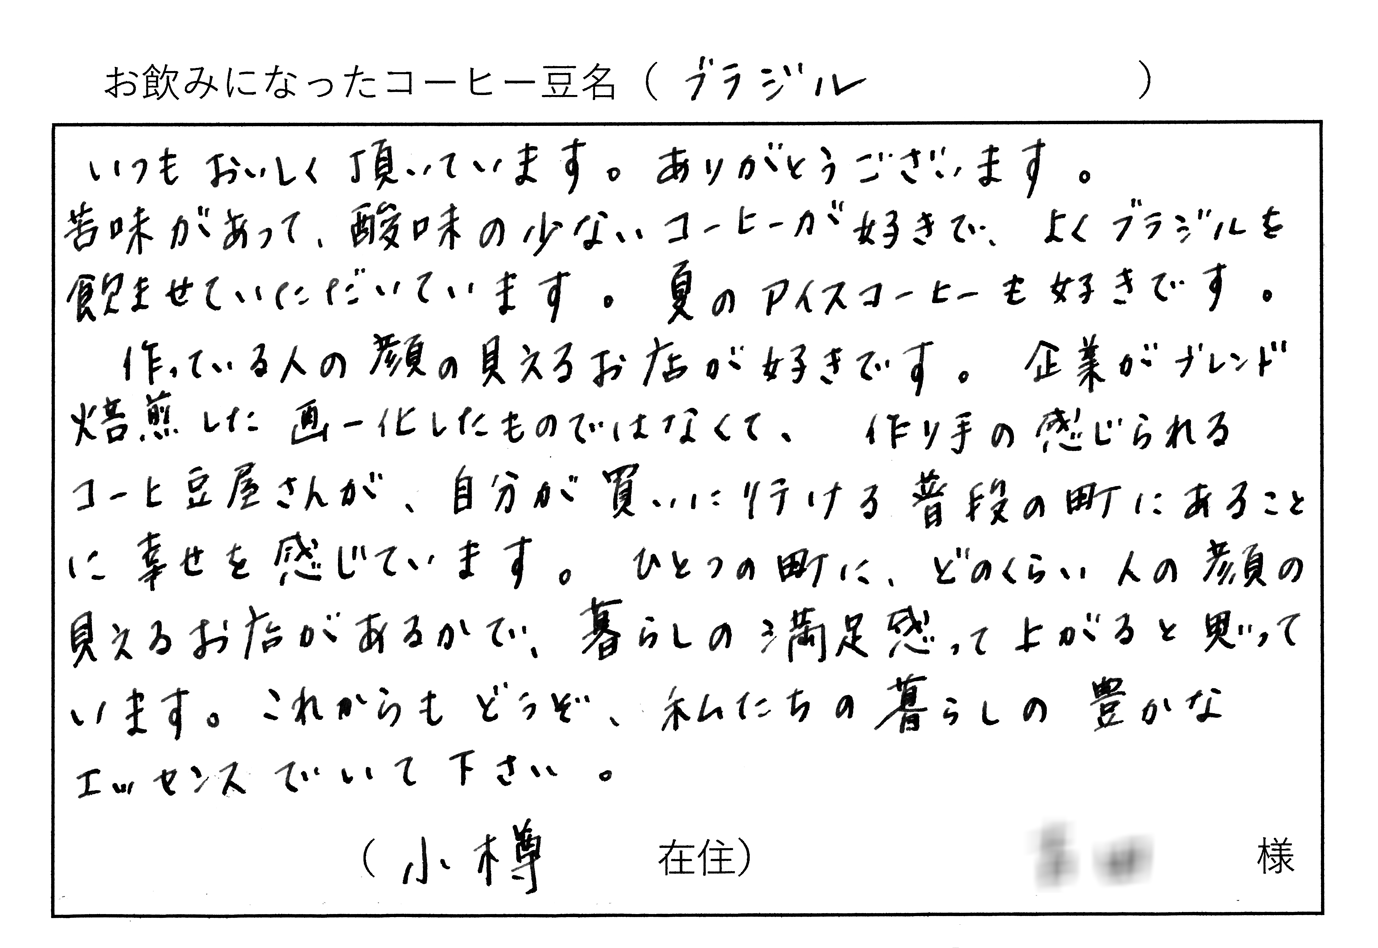 お飲みになったコーヒー豆名（ ブラジル ）
いつもおいしく頂いています。ありがとうございます。
苦味があって、酸味の少ないコーヒーが好きで、よくブラジルを
飲ませていただいています。夏のアイスコーヒーも好きです。
作っている人の顔の見えるお店が好きです。企業がブレンド
焙煎した画一化したものではなくて、作り手の感じられる
コーヒ豆屋さんが、自分が買いに行ける普段の町にあること
に幸せを感じています。ひとつの町に、どのくらい人の顔の
見えるお店があるかで、暮らしの満足感って上がると思って
います。これからもどうぞ、私たちの暮らしの豊かな
エッセンスでいて下さい。
（ 小樽 在住） 様